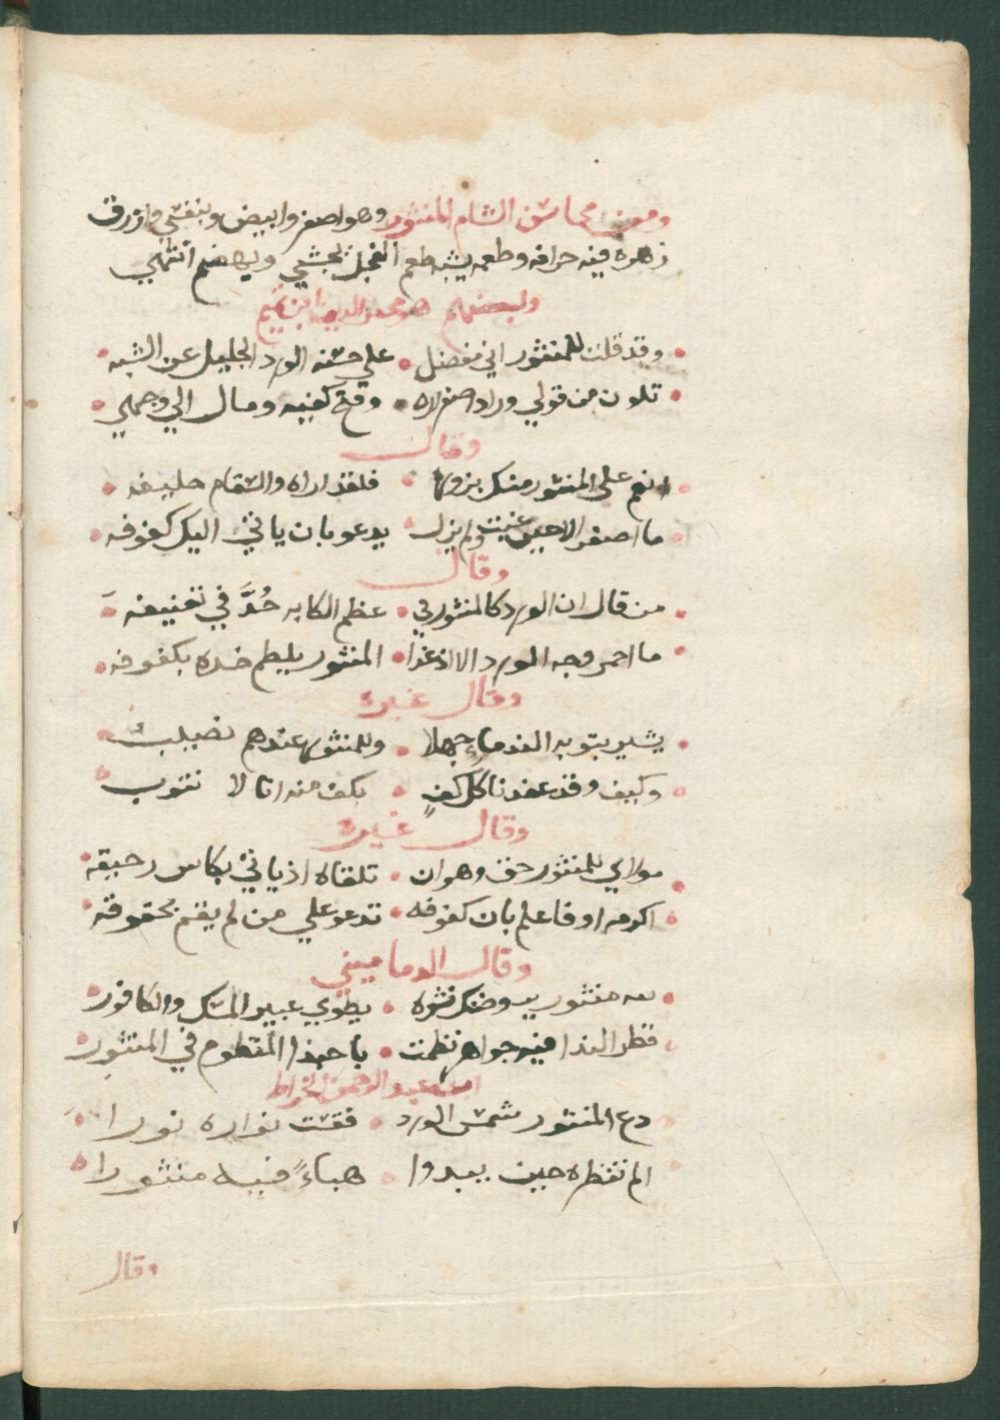 ومن محاسن الشام المنثور وهو اصفر وابيض وبنفسجي وازرق
زهره فيه حرافه وطعمه يشبه طعم الفجل يجشي ويهضم انتهي
ولبعضهم هو مجير الدين ابن تميم
وقد قلت للمنثور اني مفضل • علي حسنه الورد الجليل عن الشبه
تلون من قولي وزاد اصفراره • وفتح كفيه ومال الي وجهي
وقال
انعم علي المنثور منك بزورة • فلقد اراه والسقام حليفه
ما اصفر الا حين غبت ولم يزل • يدعو بان ياتي اليك كفوفه
وقال
من قال ان الورد كالمنثور في • عظم الكابه حُدَّ في تعنيفه
ما احمر وجه الورد الا اذ غدا • المنثور يلطم خده بكفوفه
وقال غيره
يشير بتوبه الندماء جهلا • وللمنثور عندهم نصيب
وكيف وقد عقدنا كل كفٍ • بكف منه انا لا نتوب
وقال غيره
مولاي للمنثور حق وهو ان • تلقاه اذ ياتي بكاس رحيقه
اكرمه او فاعلم بان كفوفه • تدعو علي من لم يقم بحقوقه
وقال الدماميني
لله منثور بروضك نشره • يطوي عبير المسك والكافور
قطر الندا فيه جواهر نظمت • يا حبذا المنظوم في المنثور
ابن عبد الرحمن الخراط
دع المنثور شمس الورد • فقت نواره نورا
الم تنظره حين يبدوا • هباءً فيه منثورا
وقال